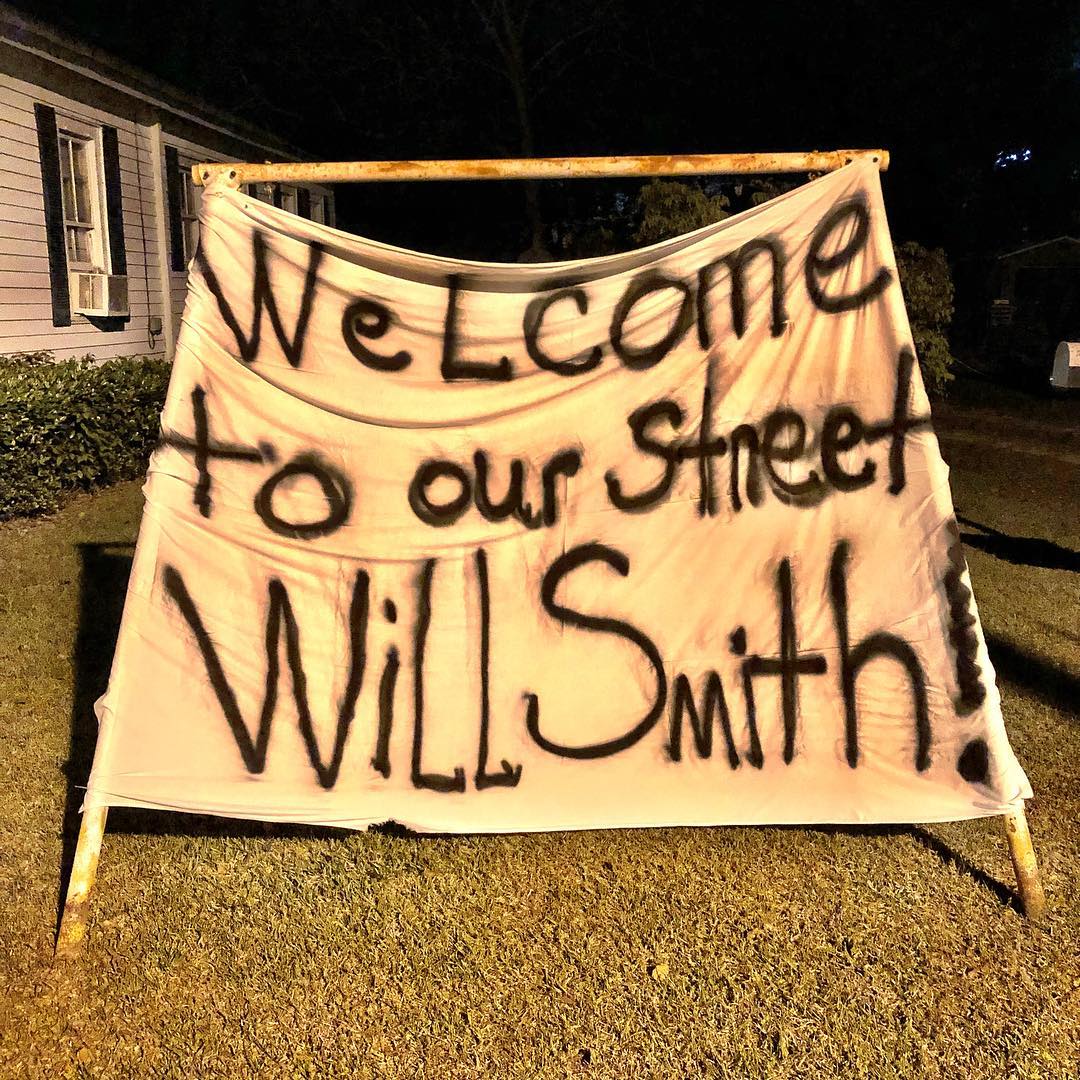 WeLcome
to our street
WiLL Smith!